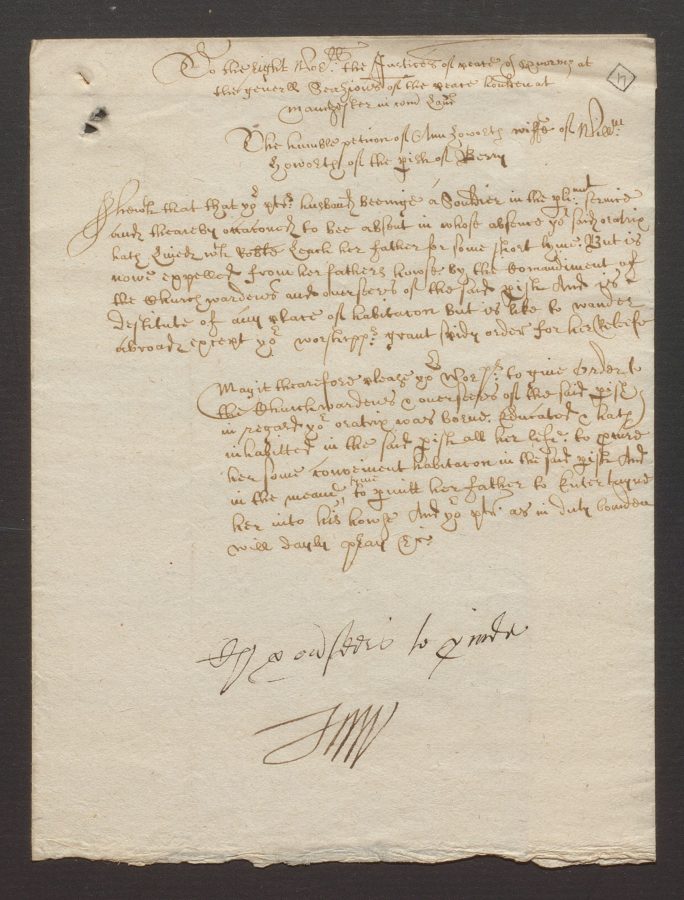 To the right Wor:ll the Justices of peace & Quoru' at
the generll Seassions of the peace houlden at
Manchester in com' Lanc'
The humble petic'on of Ann Haworth wiffe of Will'm
Haworth of the p'ish of Bery
Sheweth that that yo:r pet:r husband beeinge a Souldier in the p'liam:t service
and theareby occaconed to bee absent in whose absence yo:r said oratrix
hath Lived w:th Robte Leach her father for some short tyme. But is
nowe expelled from her fathers howse by the Comandiment of
the Churchwardens and overseers of the said p'ish And is
destitute of any place of habitac'on But is like to wander
abroade except yo:r worshipp:s grant spedy order for her Releefe
May it theareforre please yo:r Wor:pps to give Order to
the Churchwardens & overseers of the said p'ish
in regard yo:r oratrix was borne, Educated & hath
inhabitted in the said p'ish all her life: to p'vide
her some convenient habitac'on in the said p'ish And
in the meane tyme to p'mitt her father to Entertayne
her into his howse And yo:r pet:r as in duty bounden
will dayly pray &c
overseers to p'vide